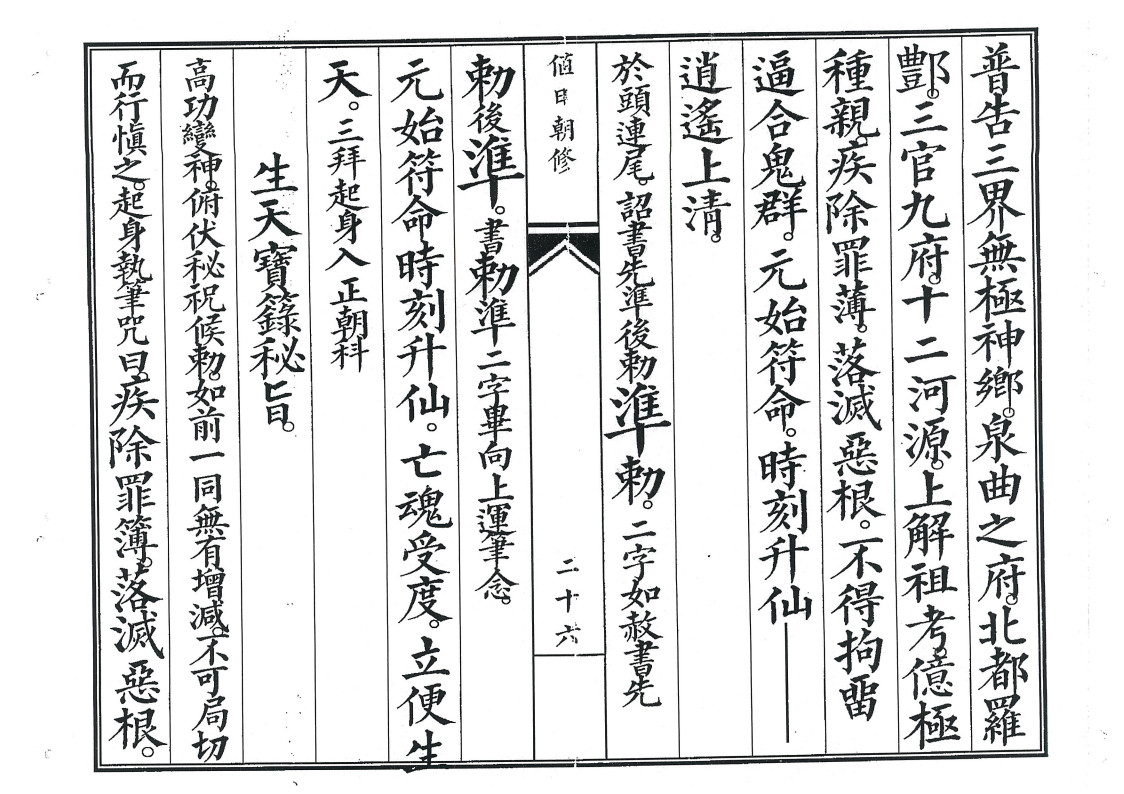 普告三界無極神鄉。泉曲之府。北都羅
酆。三官九府。十二河源。上解祖考。億極
種親。疾除罪薄。落滅惡根。一不得拘畱
逼合鬼群。元始符命。時刻升仙
逍遙上清。
於頭連尾。詔書先準後勅準勅。二字如赦書先
値日朝修
二十六
勅後準。書勅準二字畢向上運筆念。
元始符命時刻升仙。亡魂受度。立便生
天。三拜起身入正朝科
生天寶籙秘旨。
高功變神。俯伏秘祝候勅。如前一同無有增減。不可局切
而行慎之。起身執筆咒曰。疾除罪簿。落滅惡根。